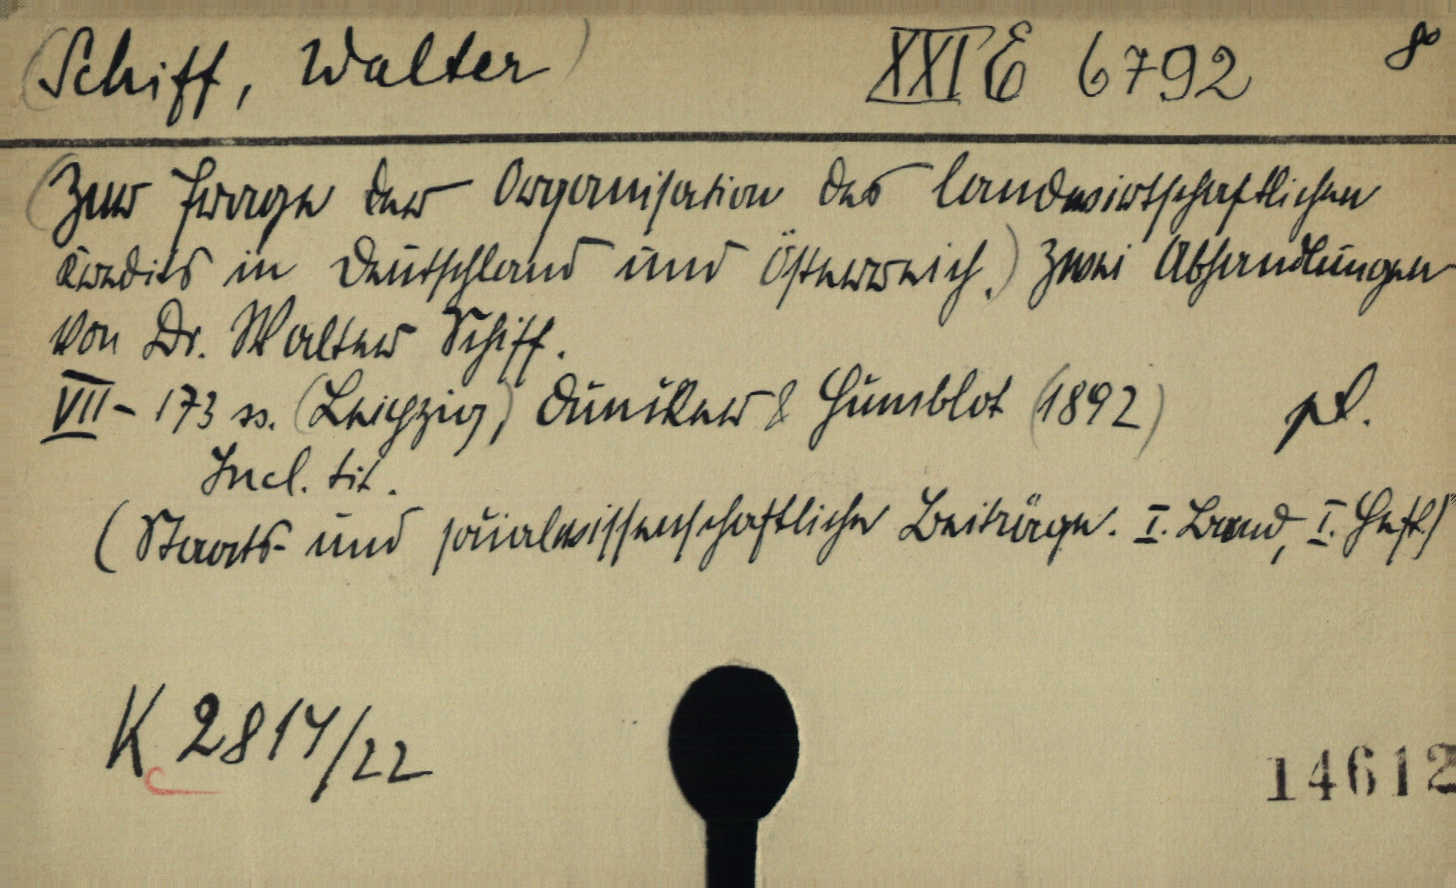 (Schiff, Walter) XXI E 6792 8°
(Zur Frage der Organisation des landwirtschaftlichen
Kredits in Deutschland und Österreich.) Zwei Abhandlungen
von Dr. Walter Schiff.
VII - 173 ss. (Leipzig), Duncker & Humblot (1892) pl.
Incl. tit.
(Staats- und socialwissenschaftliche Beiträge. I. Band, I. Heft)
K 2814/22
14612